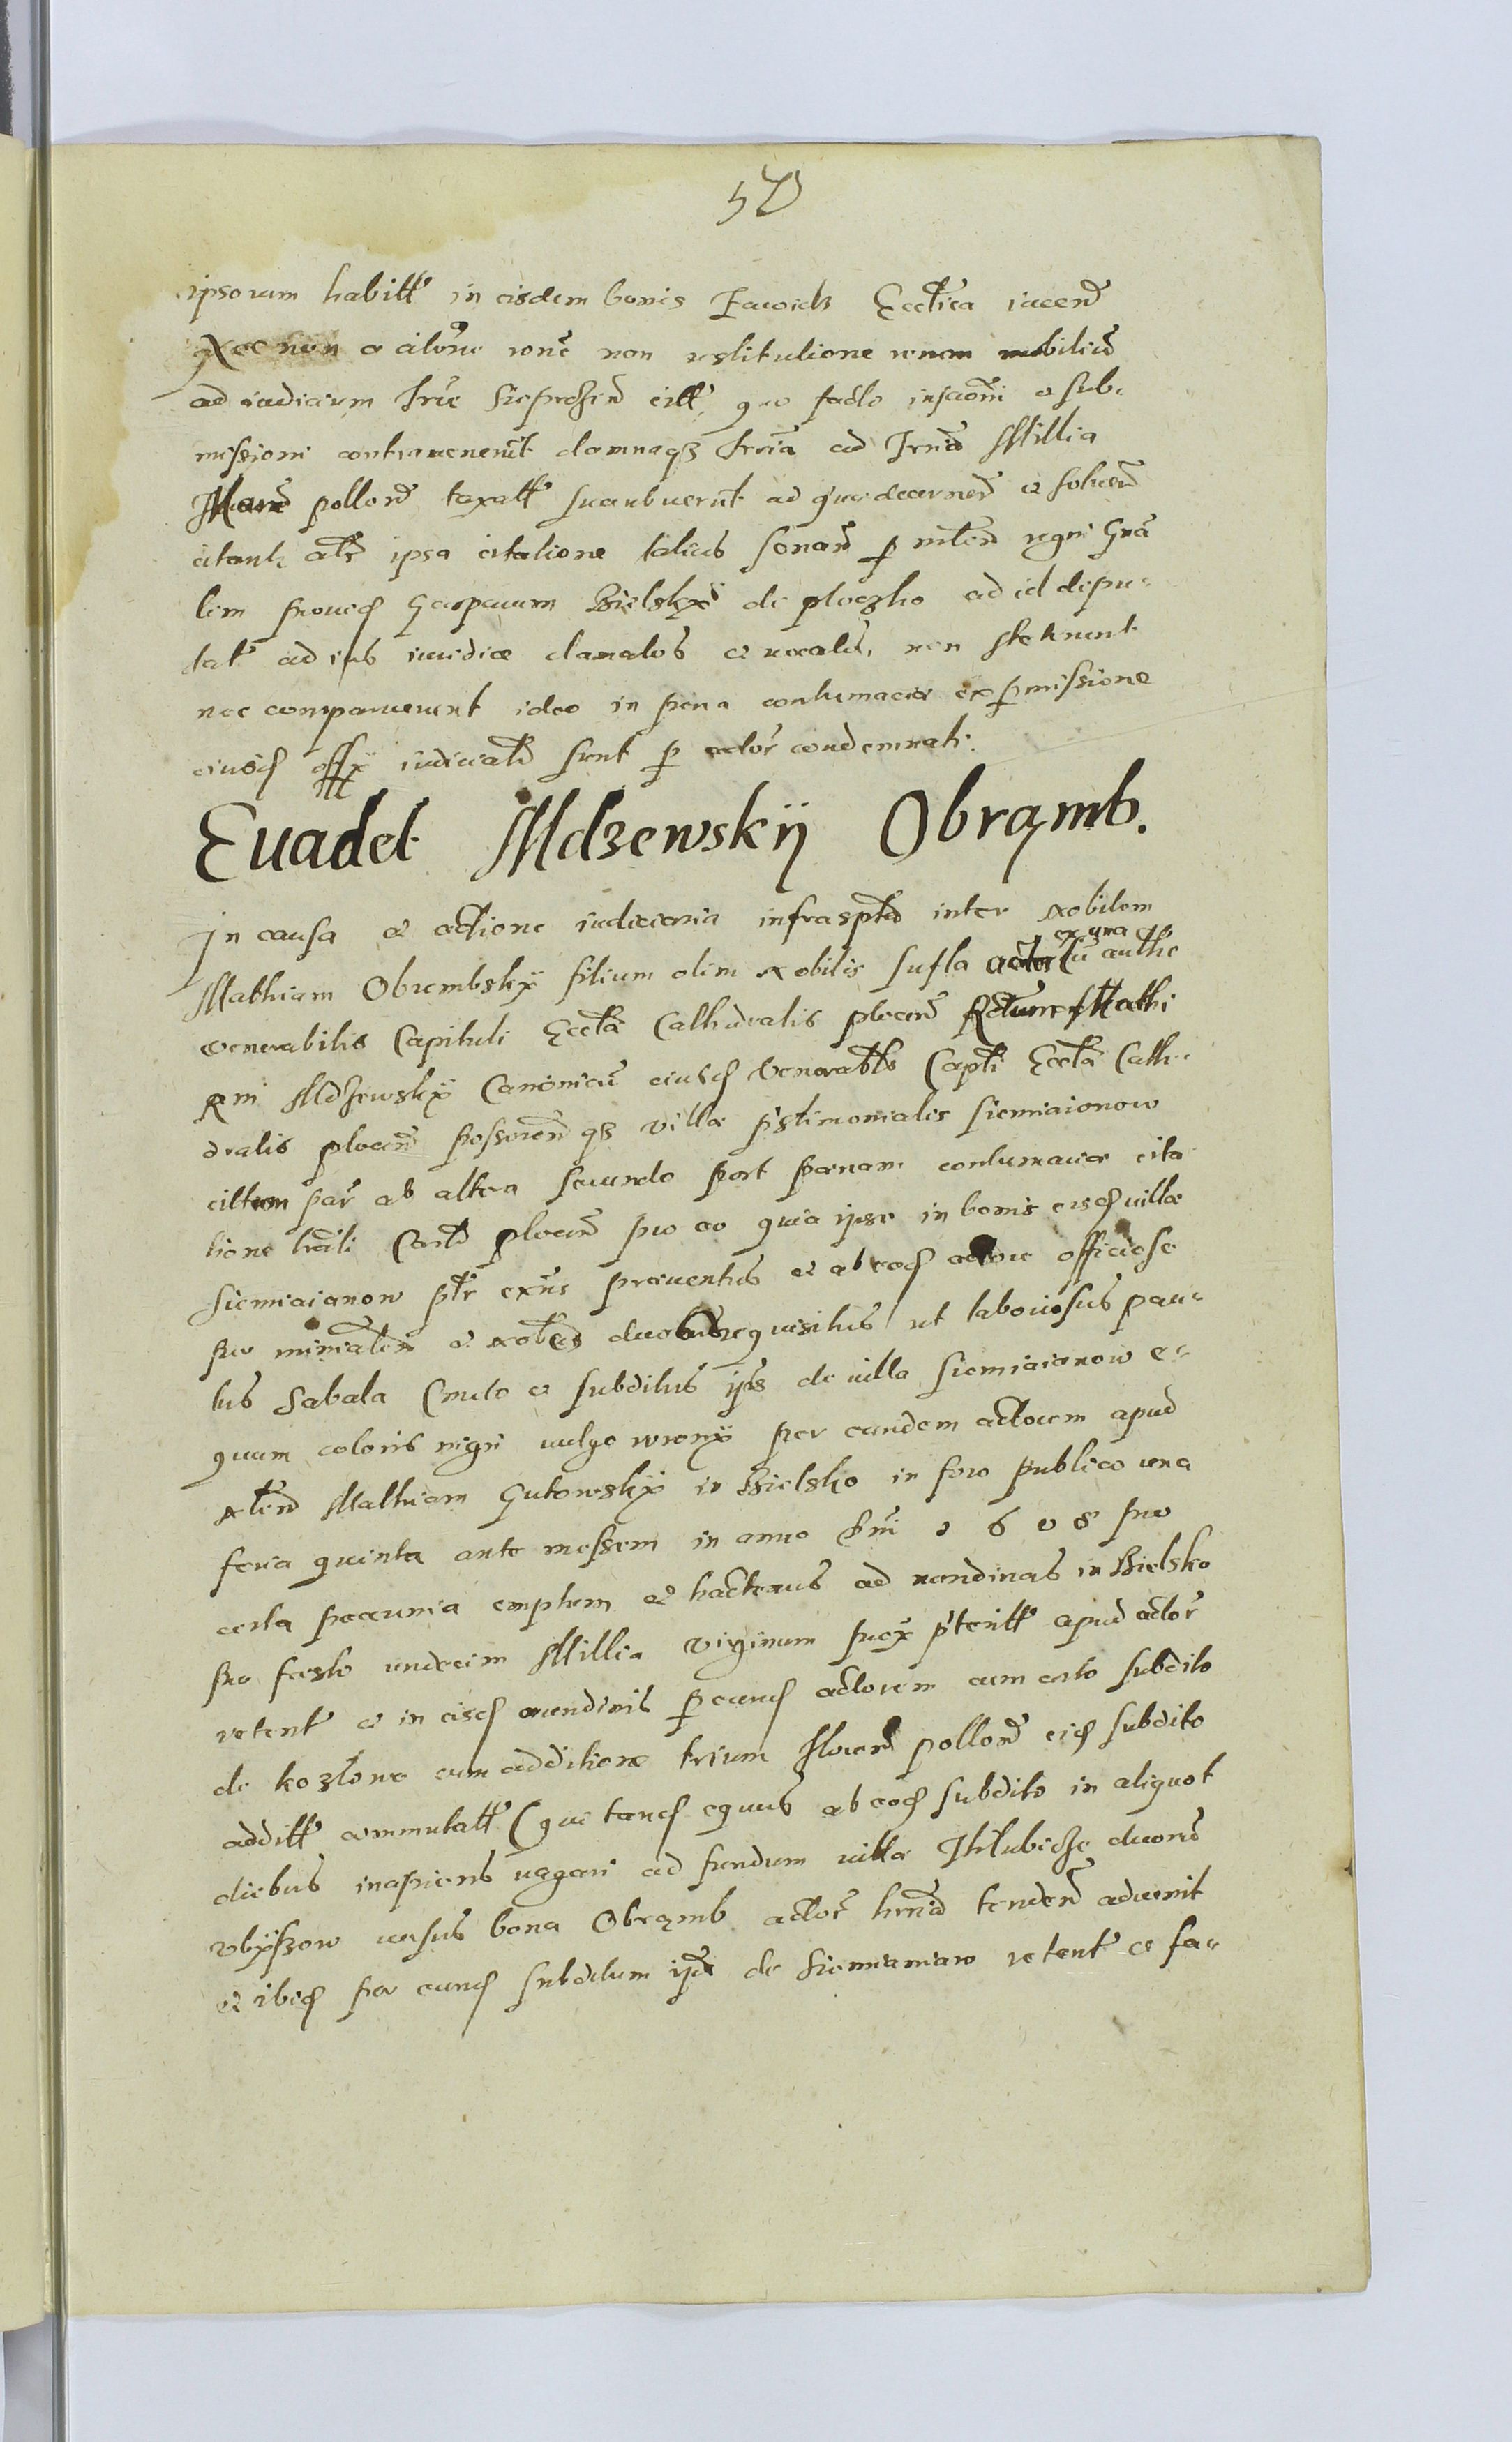 50
ipsorum habitt in eisdem bonis Jaroch Ecctica iacen
Nec non citone non restitutione rerum mobiliũ
ad iudicium Trre Sieprcsen citt, quo facto inscõni et sub-
missioni contravenerũt damnaqz ad Millia
Marc pollon taxatt succubuerũt ad decernen et solven
citanti ipsa citatione latius sonan p mten regni Gnã
lem provid Gasparum Bielskÿ de ploczko ad id depu-
tat ad ius iuridice clamatos et vocatos, non steterunt
nec comparuerunt ideo in pena contumaciæ ex pmissione
eiusd offÿ iudiciat sunt p actor condemnati.
Evadet Mdzewskij Obramb.
In causa et actione iudiciaria infrasptа inter Nobilem
Mathiam Obrembskÿ filium olim Nobilis Susla actor ex una authe
venerabilis Capituli Ecctæ Cathedralis plocen Rdum Mathi
am Mdzewskÿ Canonicũ eiusd Venerabtis Capti Ecctæ Cathe-
dralis plocen possoren qz villæ pstimonialis Siemiaionow
cittum par ab altera secundo post pænam contumaciæ cita
tione Cast plocen pro eo quia ipse in bonis eisd villæ
Siemiaianow ptr exns præventus et ab eod actore officiose
pro et nobes duobus requisitus ut laboriosus pau-
lus Sabala Cmeto et subditus ips de villa Siemiaianow e-
quum coloris nigri vulgo wronÿ per eundem actorem apud
Mathiam Gutowskÿ in Bielsko in foro publico una
feria quinta ante messem in anno Dni 1608 pro
certa peccunia emptum et hactenus ad nundinas in Bielsko
pro festo undecim Millia virginum prox pteritt apud actor
retent et in eisd nundinis p eund actorem cum certo subdito
de kozlowo cum additione trium floren pollon eid subdito
additt commutatt (qui tand equus ab eod subdito in aliquot
diebus inapiens vagari ad fundum villæ Thlubicze
vbÿszow versus bona Obramb actor tenden advenit
et ibid per eund subditum ips de Siemianiaw retent et fa-